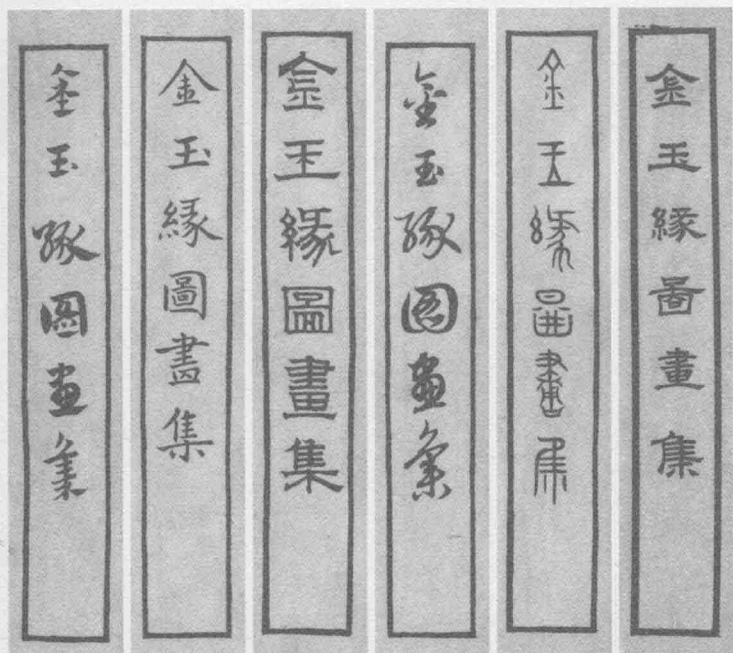 金玉緣圖畫集
金玉緣圖畫集
金玉緣圖畫集
金玉緣圖畫集
金玉緣圖畫集
金玉緣圖畫集